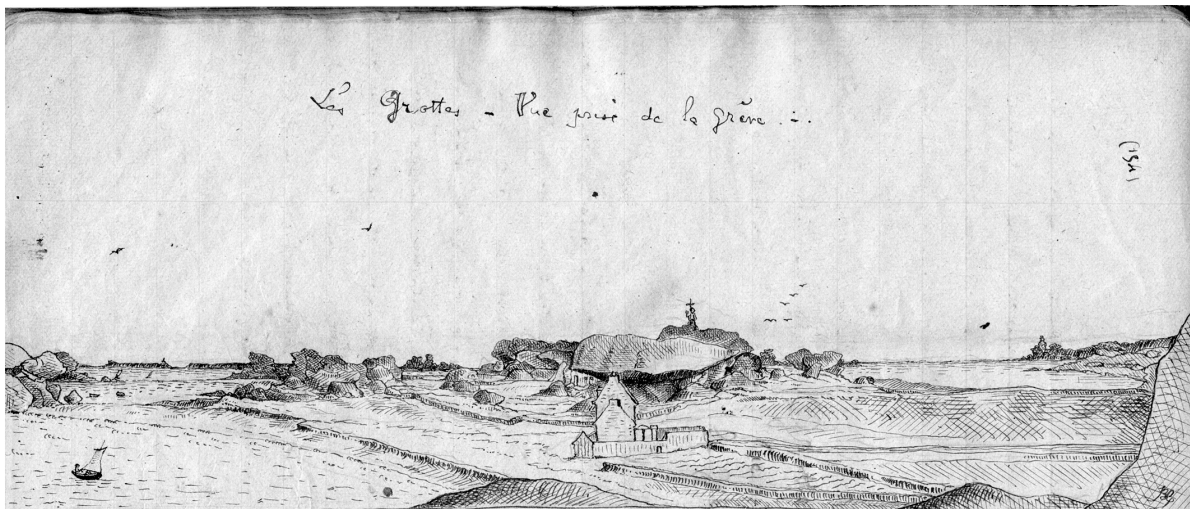 Les Grottes - Vue prise de la grève .-.